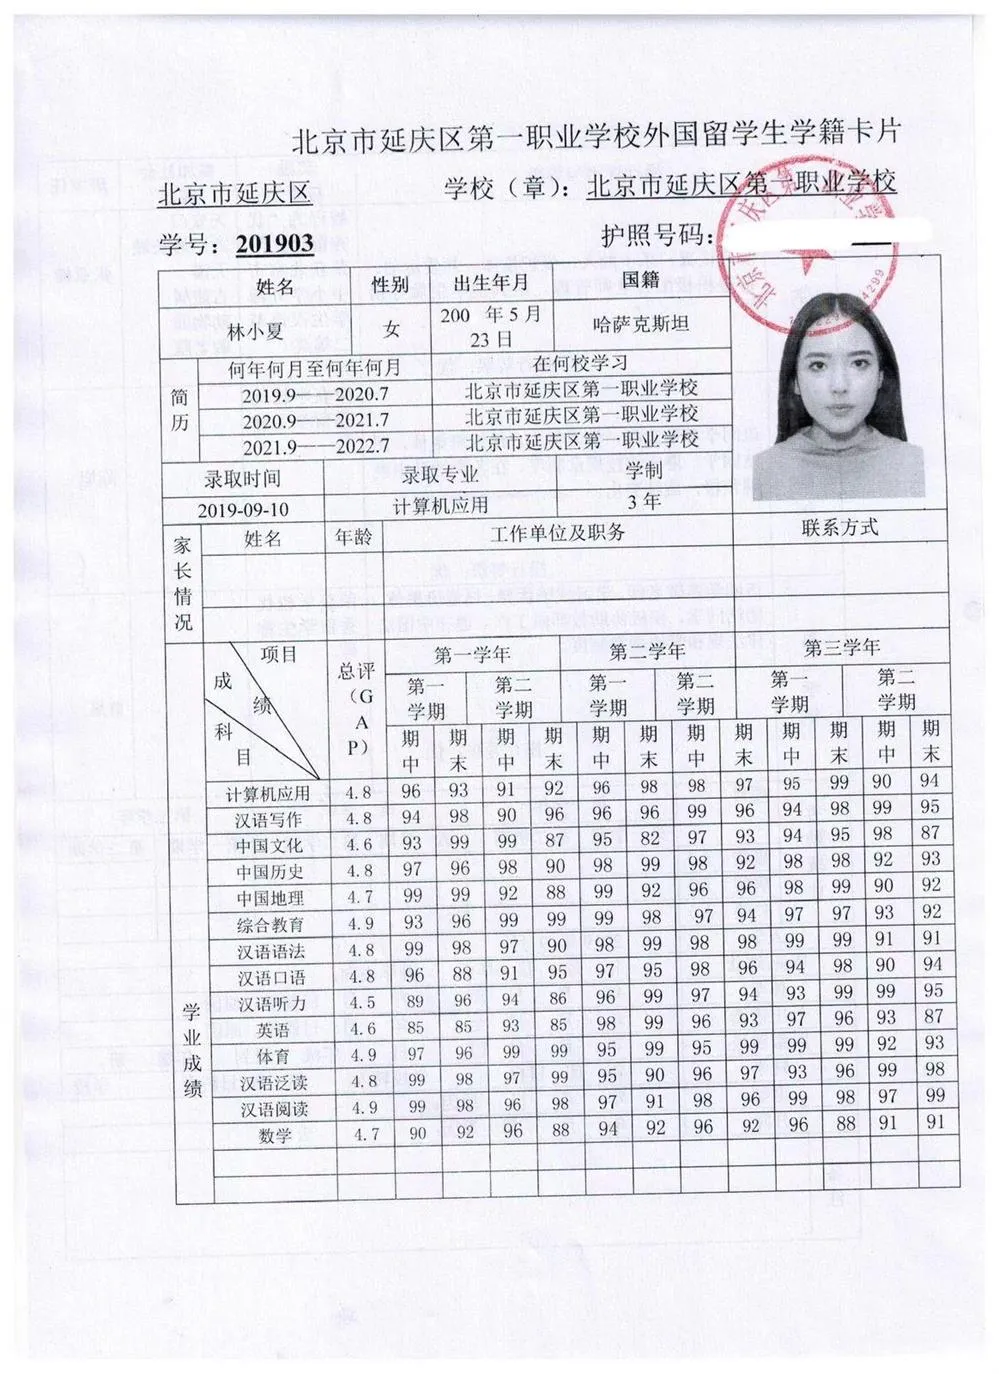 北京市延庆区第一职业学校外国留学生学籍卡片
北京市延庆区 学校（章）：北京市延庆区第一职业学校
学号：201903 护照号码：
姓名 性别 出生年月 国籍
林小夏 女 200 年5月23日 哈萨克斯坦
简历 何年何月至何年何月 在何校学习
2019.9——2020.7 北京市延庆区第一职业学校
2020.9——2021.7 北京市延庆区第一职业学校
2021.9——2022.7 北京市延庆区第一职业学校
录取时间 录取专业 学制
2019-09-10 计算机应用 3年
家长情况 姓名 年龄 工作单位及职务 联系方式
学业成绩 项目 成绩 科目 总评（GAP） 第一学年 第二学年 第三学年
第一学期 第二学期 第一学期 第二学期 第一学期 第二学期
期中 期末 期中 期末 期中 期末 期中 期末 期中 期末 期中 期末
计算机应用 4.8 96 93 91 92 96 98 98 97 95 99 90 94
汉语写作 4.8 94 98 90 96 96 96 99 96 94 98 99 95
中国文化 4.6 93 99 99 87 95 82 97 93 94 95 98 87
中国历史 4.8 97 96 98 90 98 99 98 92 98 98 92 93
中国地理 4.7 99 99 92 88 99 92 96 96 98 99 90 92
综合教育 4.9 93 96 99 99 99 98 97 94 97 97 93 92
汉语语法 4.8 99 98 97 90 98 99 98 98 99 99 91 91
汉语口语 4.8 96 88 91 95 97 95 98 96 94 98 90 94
汉语听力 4.5 89 96 94 86 96 99 97 94 93 99 99 95
英语 4.6 85 85 93 85 98 99 96 93 97 96 93 87
体育 4.9 97 96 99 99 95 99 95 99 99 99 92 93
汉语泛读 4.8 99 98 97 99 95 90 96 97 93 96 99 98
汉语阅读 4.9 99 98 96 98 97 91 98 96 99 98 97 99
数学 4.7 90 92 96 88 94 92 96 92 96 88 91 91